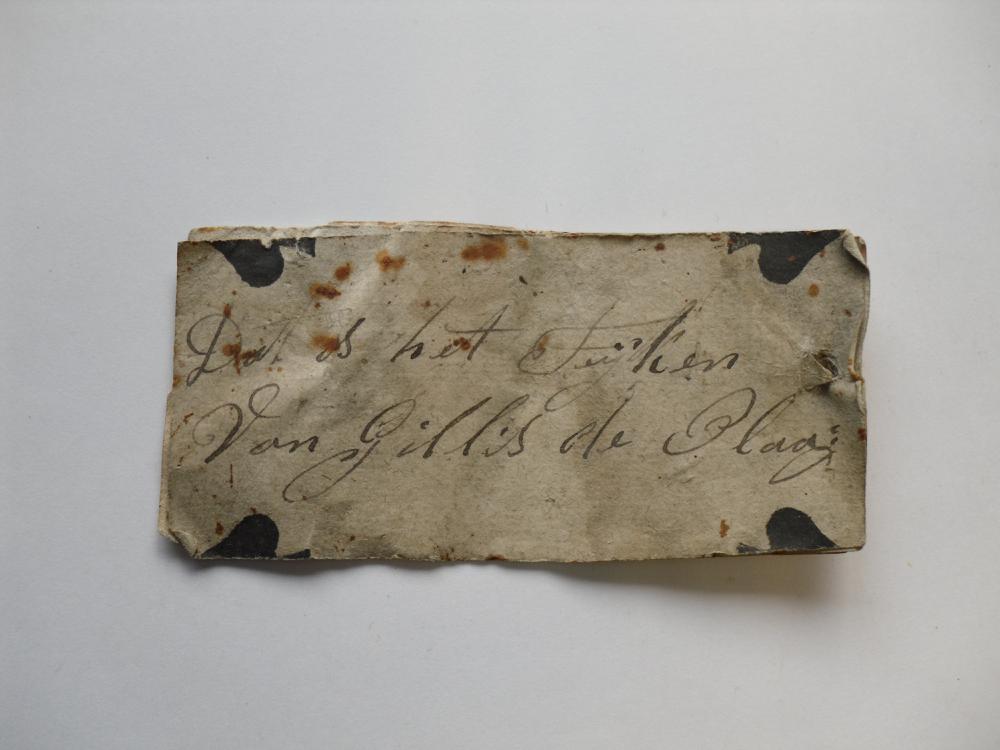 Dat is het Tuÿken
Van Gillis de Plaaÿ